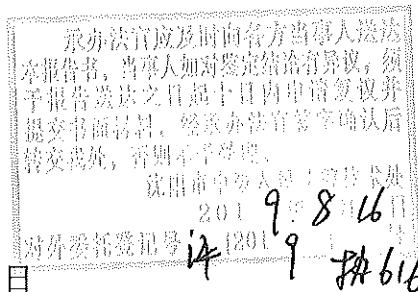 承办法官应及时向各方当事人送达
本报告书，当事人如对鉴定结论有异议，须
于报告送达之日起十日内申请复议并
提交书面材料，经承办法官签字确认后
转交我处，否则不予受理。
沈阳市中级人民法院技术处
201 9 年 8 月 16 日
对外委托登记号 [201 9 ] 616
日